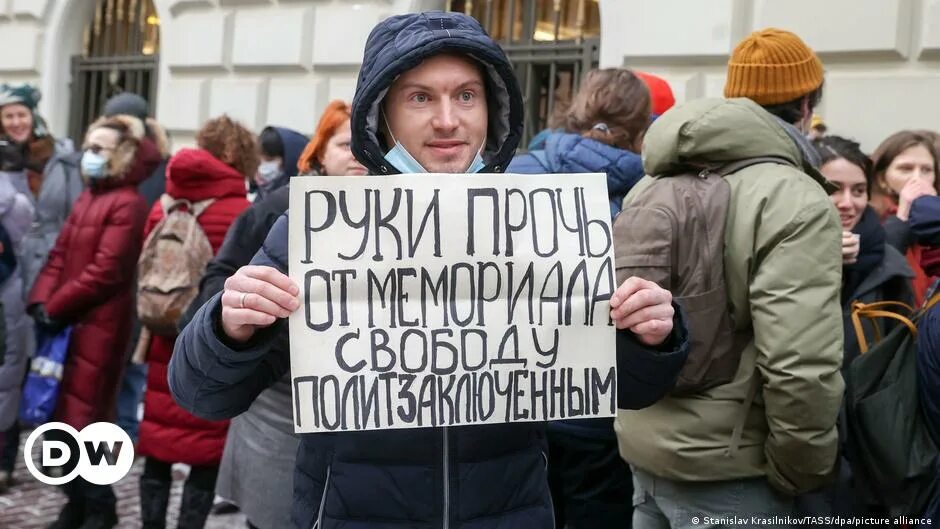 РУКИ ПРОЧЬ
ОТ МЕМОРИАЛА
СВОБОДУ
ПОЛИТЗАКЛЮЧЕННЫМ
DW
© Stanislav Krasilnikov/TASS/dpa/picture alliance